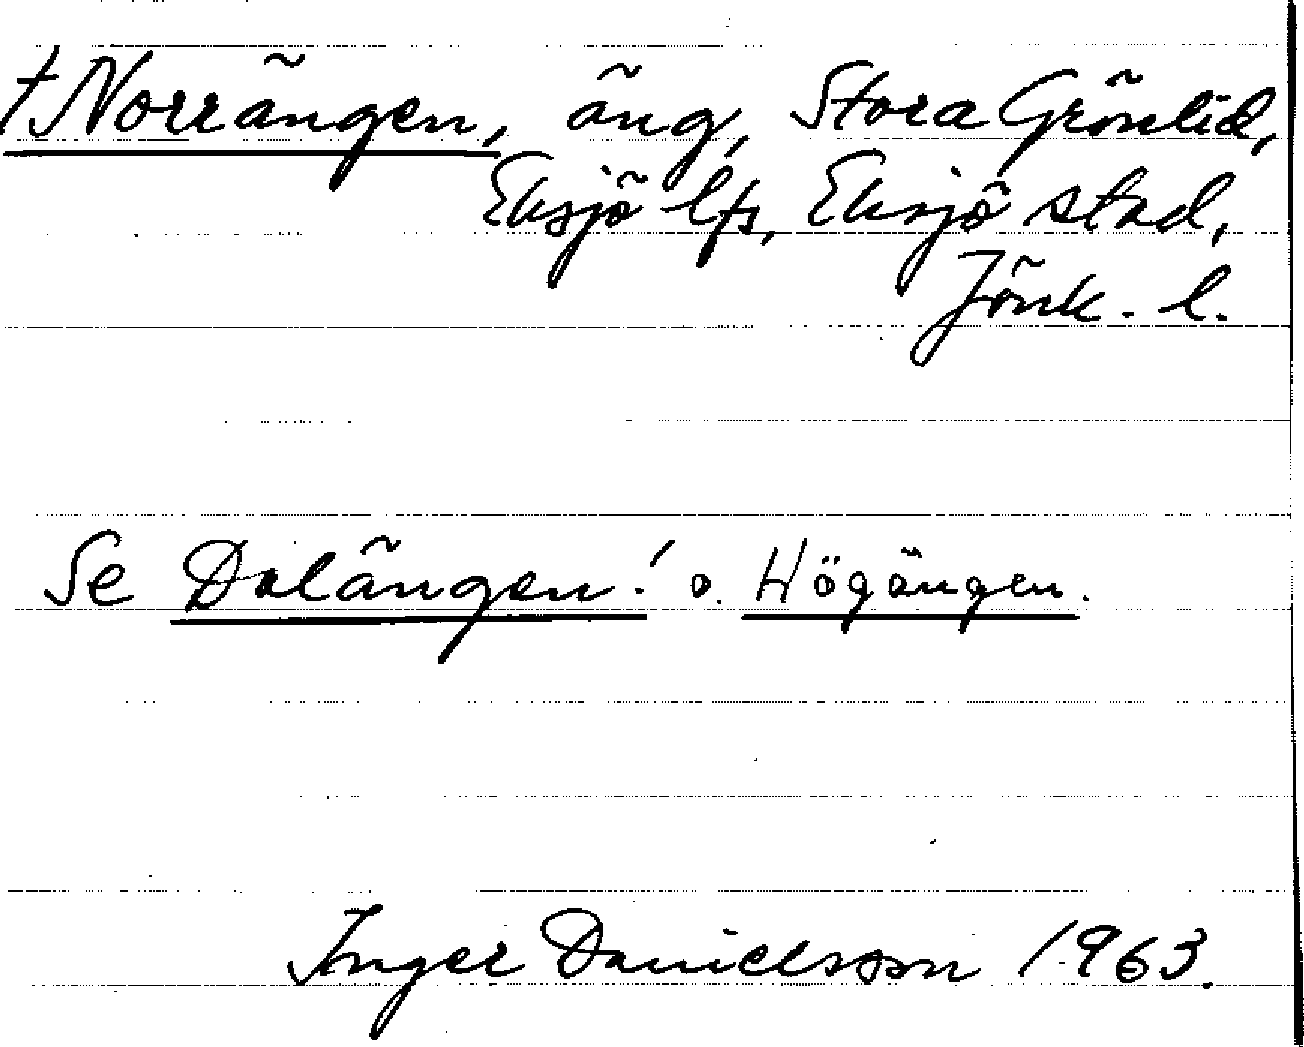 † Norrängen, äng, Stora Grönlid,
Eksjö lfs, Eksjö stad,
Jönk. l.
Se Dalängen! o. Högängen.
Inger Danielsson 1963.